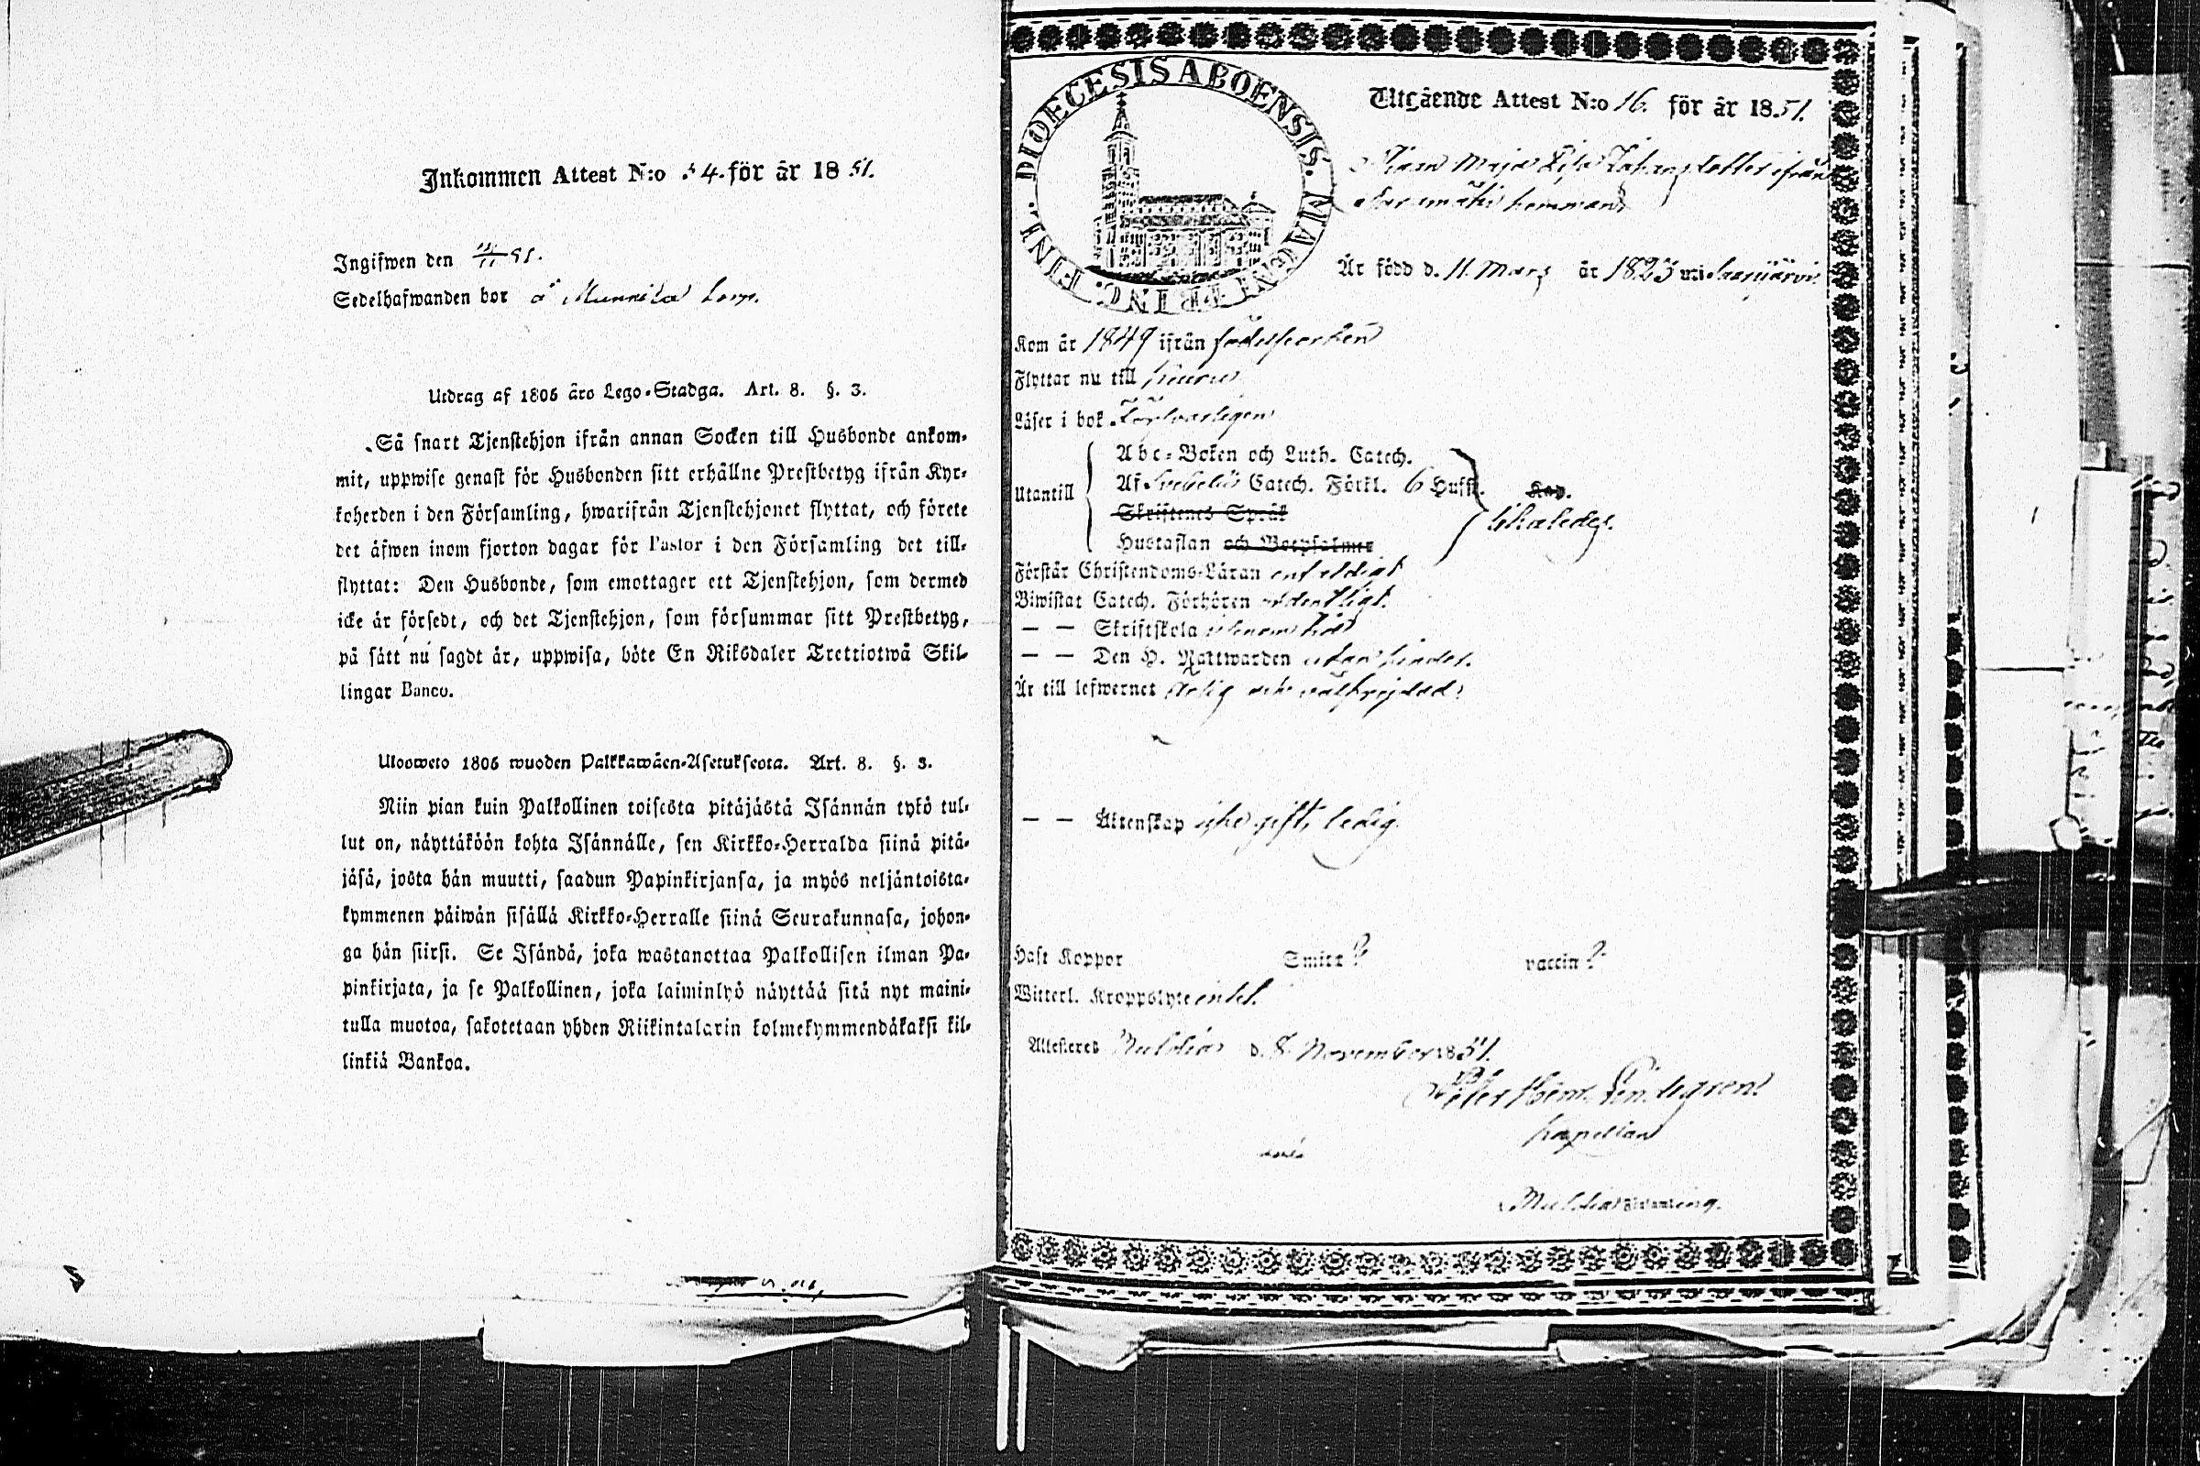 Inkommen Attest N:o 34. för år 1851.
Ingifwen den 51.
Sedelhafwanden bor å Munnila torp.
Utdrag af 1805 års Lego-Stadga. Art. 8. §. 3.
Så snart Tjenstehjon ifrån annan Socken till Husbonde ankom-
mit, uppwise genast för Husbonden sitt erhållne Prestbetyg ifrån Kyr-
koherden i den Församling, hwarifrån Tjenstehjonet flyttat, och förete
det äfwen inom fjorton dagar för Pastor i den Församling det till-
flyttat: Den Husbonde, som emottager ett Tjenstehjon, som dermed
icke är försedt, och det Tjenstehjon, som försummar sitt Prestbetyg,
på sätt nu sagdt är, uppwisa, böte En Riksdaler Trettiotwå Skil-
lingar Banco.
Ulosweto 1805 wuoden Palkkawäen-Asetuksesta. Art. 8. §. 3.
Niin pian kuin Palkollinen toisesta pitäjästä Isännän tykö tul-
lut on, näyttäköön kohta Isännälle, sen Kirkko-Herralda siinä pitä-
jäsä, josta hän muutti, saadun Papinkirjansa, ja myös neljäntoista-
kymmenen päiwän sisällä Kirkko-Herralle siinä Seurakunnasa, johon-
ga hän siirsi. Se Isändä, joka wastanottaa Palkollisen ilman Pa-
pinkirjata, ja se Palkollinen, joka laiminlyö näyttää sitä nyt maini-
tulla muotoa, sakotetaan yhden Riikintalarin kolmekymmendäkaksi kil-
linkiä Bankoa.
DIOECESIS ABOENSIS. MAGNI PRINC. FINL.
Utgående Attest N:o 16. för år 1851.
Maja Lisa Johansdotter ifrån
hemman
Är född d. 11 Mars år 1823 uti
Kom år 1849 ifrån födelseorten
Flyttar nu till Keuru
Läser i bok
Utantill
Abc-Boken och Luth. Catech.
Af Svebelii Catech. Förkl. 6 Hufst. Kap.
Skriftenes Språk
Hustaflan och Botpsalmer
Förstår Christendoms-Läran enfaldigt
Biwistat Catech. Förhören ordentligt.
— — Skriftskola
— — Den H. Nattwarden utan hinder.
Är till lefwernet ärlig och välfrejdad.
— — Äktenskap icke gift, ledig.
Haft Koppor Smitt ? vaccin ?
Witterl. Kroppslyte intet.
Attesteras Multia d. 8 November 1851.
Peter Henr. Lindegren
Kapellan
Multia Församling.